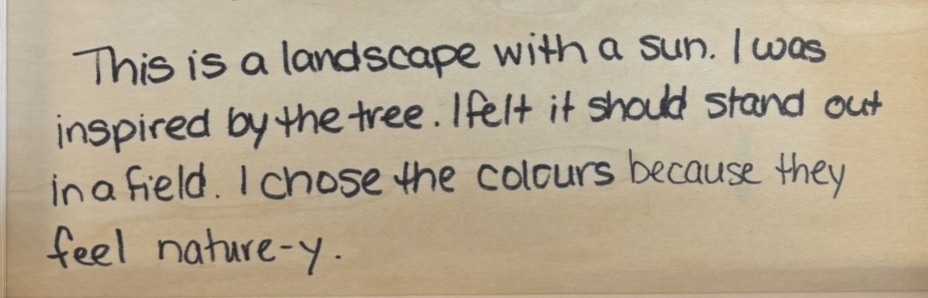 This is a landscape with a sun. I was
inspired by the tree. I felt it should stand out
in a field. I chose the colours because they
feel nature-y.